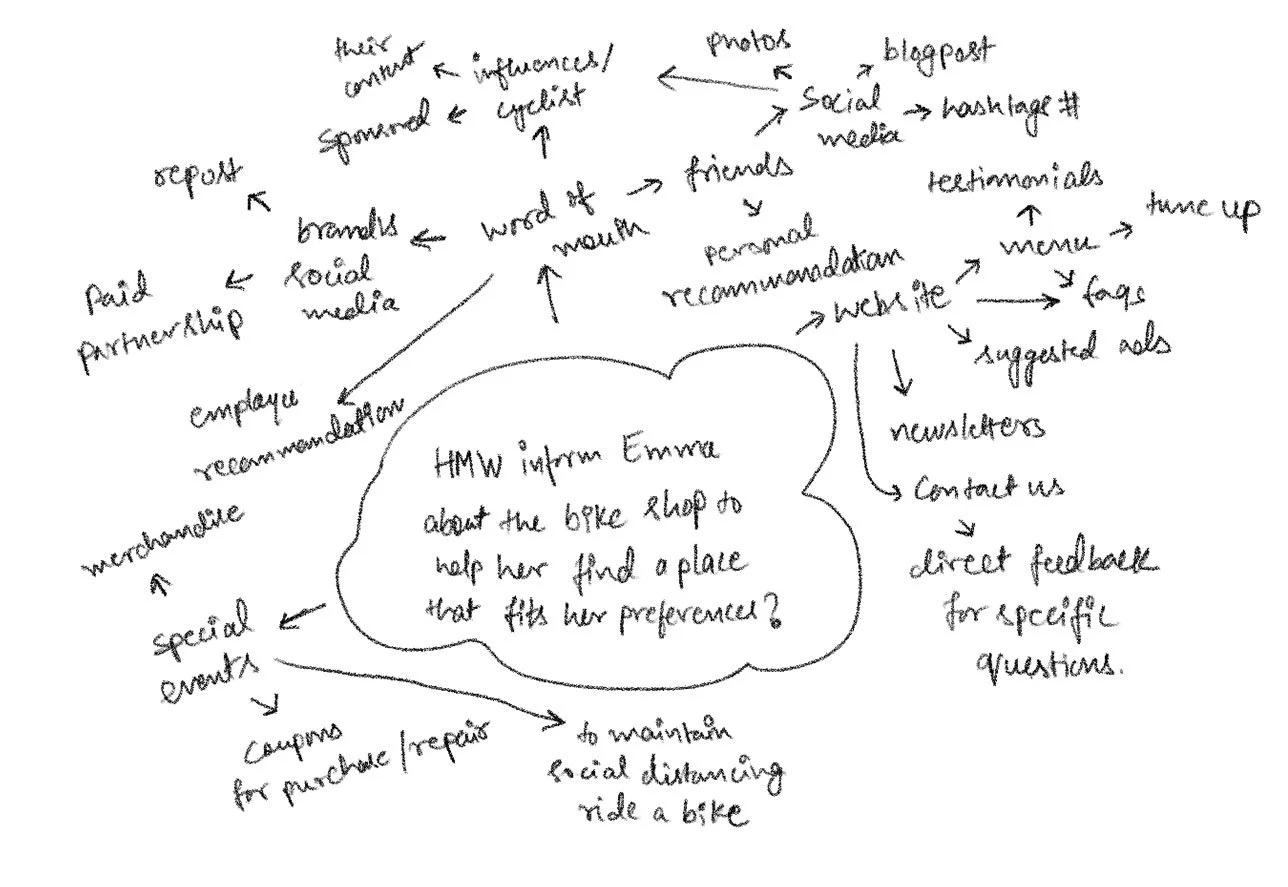 their
content
influences/
cyclist
sponsored
photos
blogpost
social
media
hashtags #
repost
brands
social
media
paid
partnership
word of
mouth
friends
personal
recommandation
testimonials
tune up
menu
website
faqs
suggested ads
newsletters
contact us
direct feedback
for specific
questions.
employee
recommandation
HMW inform Emma
about the bike shop to
help her find a place
that fits her preferences?
merchandise
special
events
coupons
for purchase/repair
to maintain
social distancing
ride a bike